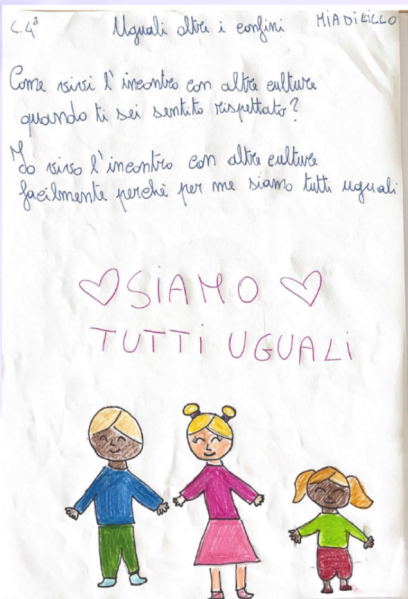 C. 4ª Uguali oltre i confini MIA DI LILLO
Come vivi l'incontro con altre culture
quando ti sei sentito rispettato?
Io vivo l'incontro con altre culture
facilmente perchè per me siamo tutti uguali
♡ SIAMO ♡
TUTTI UGUALI